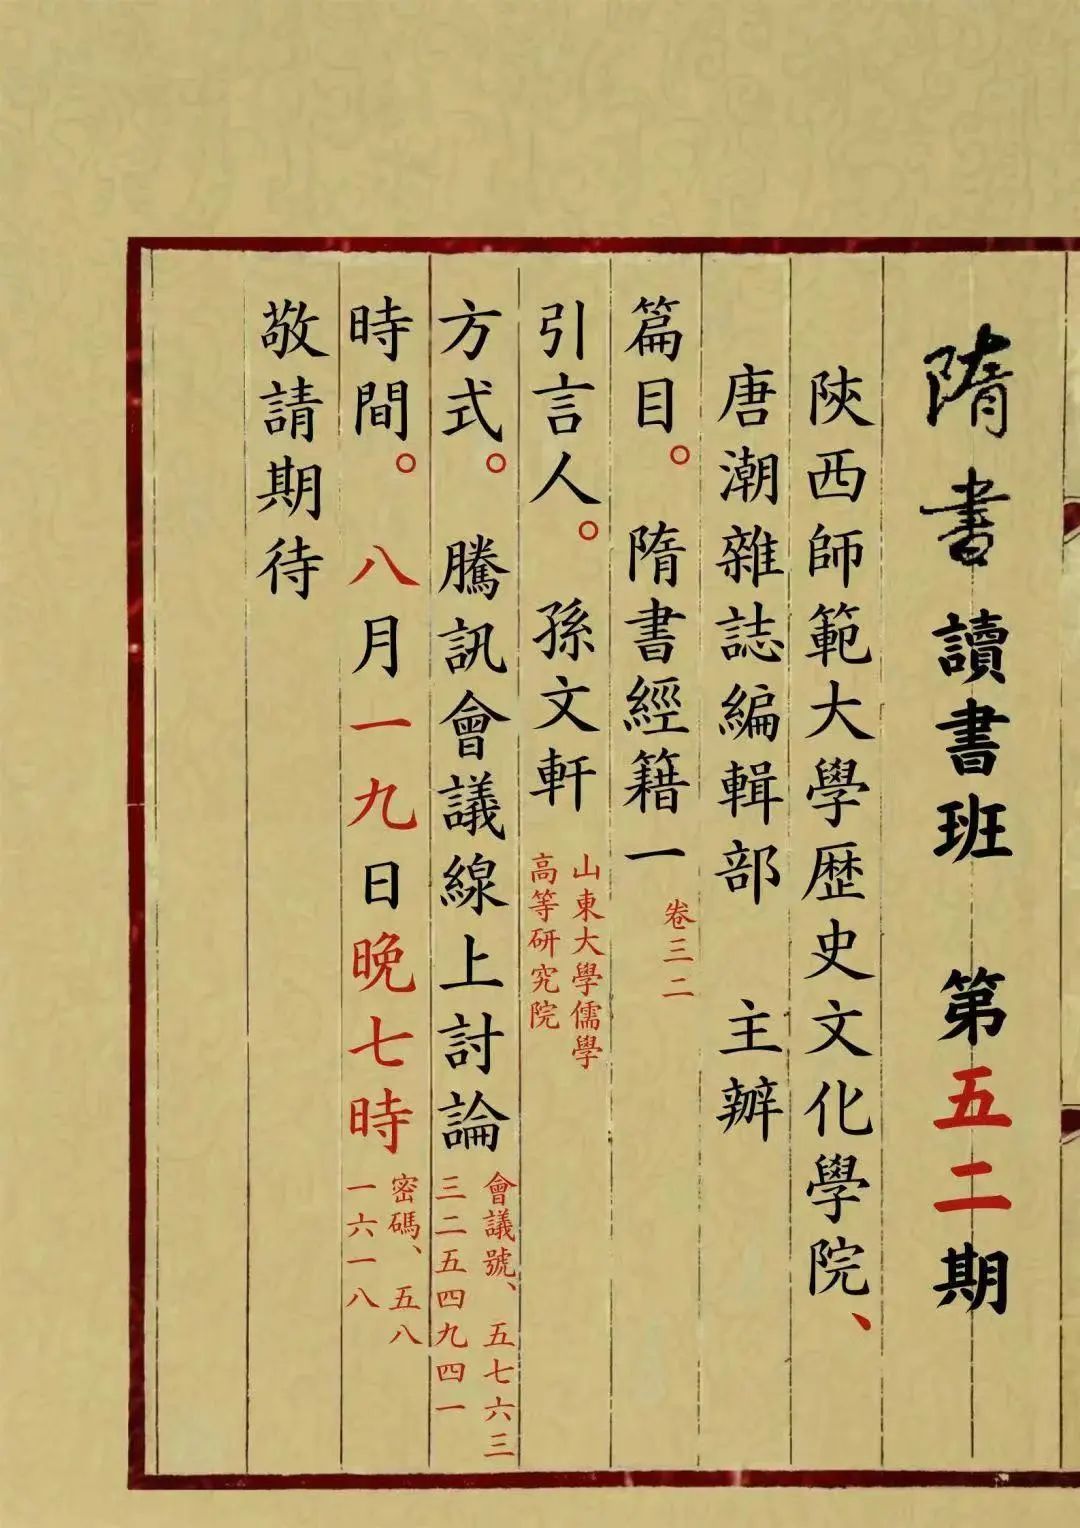 隋書讀書班 第五二期
陝西師範大學歷史文化學院、
唐潮雜誌編輯部 主辦
篇目。隋書經籍一 卷三二
引言人。孫文軒 山東大學儒學
高等研究院
方式。騰訊會議線上討論 會議號、五七六三
三二五四九四一
時間。八月一九日晚七時 密碼、五八
一六一八
敬請期待